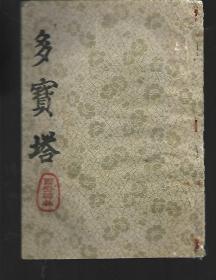 多寶塔